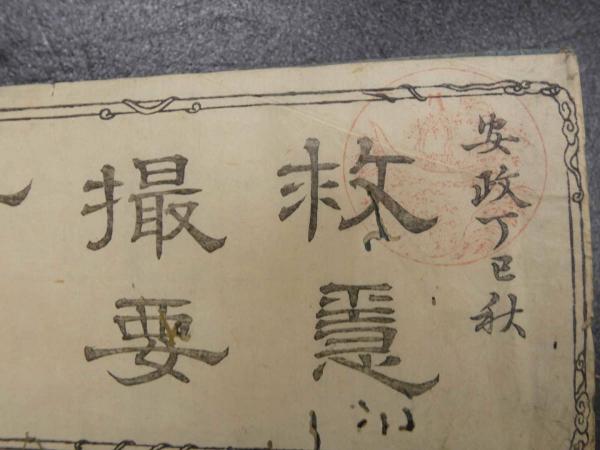 安政丁巳秋
救急
撮要